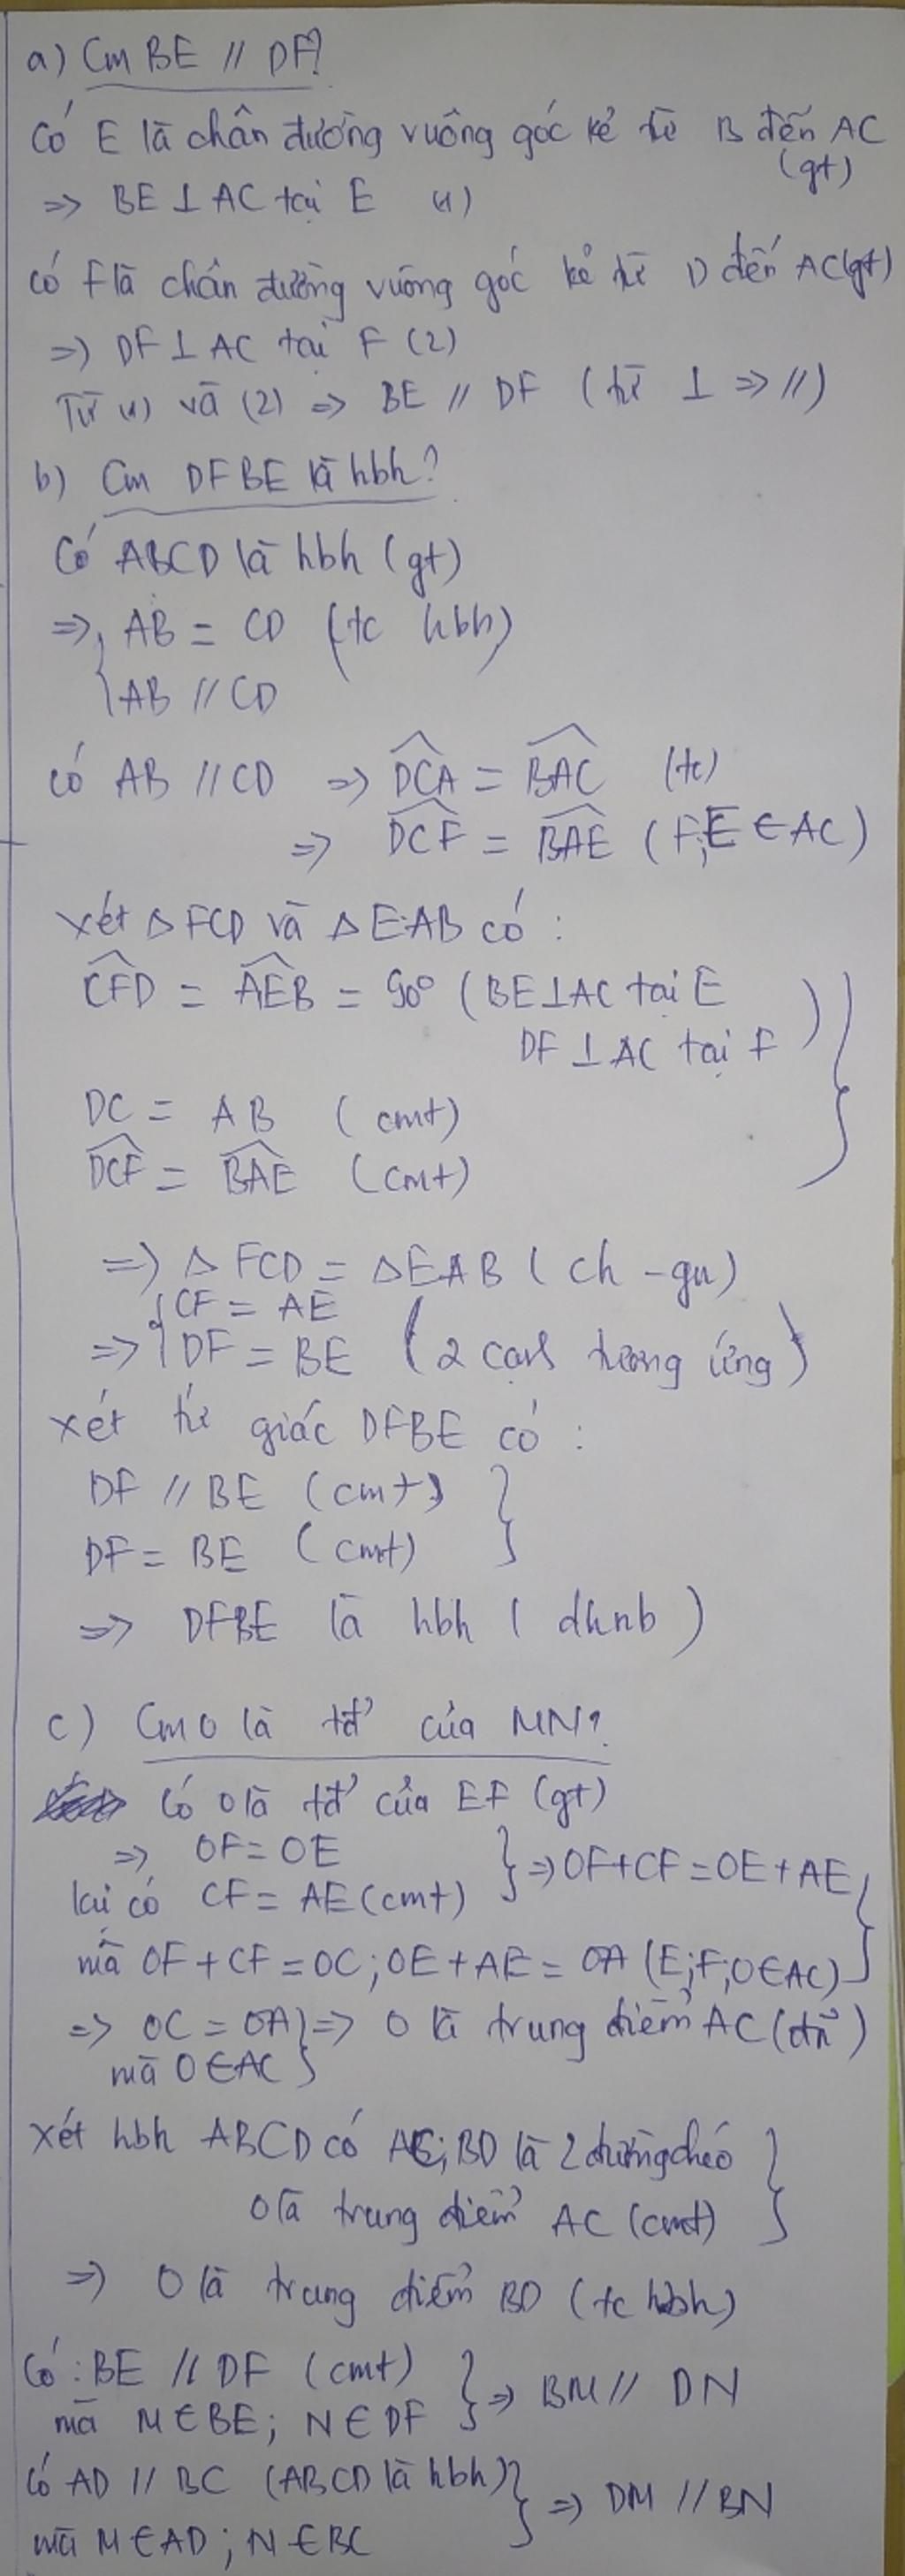 a) Cm BE // DF?
Có E là chân đường vuông góc kẻ từ B đến AC
(gt)
=> BE ⊥ AC tại E (1)
Có F là chân đường vuông góc kẻ từ D đến AC (gt)
=> DF ⊥ AC tại F (2)
Từ (1) và (2) => BE // DF (từ ⊥ => //)
b) Cm DFBE là hbh?
Có ABCD là hbh (gt)
=> { AB = CD (tc hbh)
{ AB // CD
có AB // CD => \widehat{DCA} = \widehat{BAC} (tc)
=> \widehat{DCF} = \widehat{BAE} (F;E ∈ AC)
xét △ FCD và △ EAB có :
\widehat{CFD} = \widehat{AEB} = 90° (BE⊥AC tại E
DF ⊥ AC tại F ) }
DC = AB (cmt)
\widehat{DCF} = \widehat{BAE} (cmt)
=> △ FCD = △EAB (ch - gn)
{ CF = AE
=> { DF = BE (2 cạnh tương ứng)
xét tứ giác DFBE có :
DF // BE (cmt) }
DF = BE (cmt)
=> DFBE là hbh (dhnb)
c) Cm O là tđ' của MN?
Có O là tđ' của EF (gt)
=> OF = OE } => OF + CF = OE + AE
lại có CF = AE (cmt)
mà OF + CF = OC ; OE + AE = OA (E;F;O ∈ AC) }
=> OC = OA } => O là trung điểm AC (đn)
mà O ∈ AC
Xét hbh ABCD có AC; BD là 2 đường chéo }
O là trung điểm AC (cmt)
=> O là trung điểm BD (tc hbh)
Có : BE // DF (cmt) } => BM // DN
mà M ∈ BE ; N ∈ DF
Có AD // BC (ABCD là hbh) } => DM // BN
mà M ∈ AD ; N ∈ BC